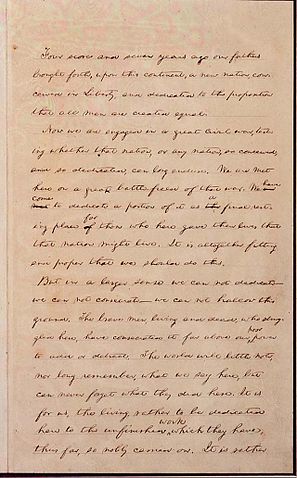 Four score and seven years ago our fathers
brought forth, upon this continent, a new nation, con-
ceived in Liberty, and dedicated to the proposition
that all men are created equal.
Now we are engaged in a great civil war, test-
ing whether that nation, or any nation, so conceived,
and so dedicated, can long endure. We are met
here on a great battle-field of that war. We have
come
to dedicate a portion of it as a final rest-
ing place for those who here gave their lives that
that nation might live. It is altogether fitting
and proper that we should do this.
But in a larger sense we can not dedicate—
we can not consecrate— we can not hallow this
ground. The brave men, living and dead, who strug-
gled here, have consecrated it far above our poor power
to add or detract. The world will little note,
nor long remember, what we say here, but
can never forget what they did here. It is
for us, the living, rather to be dedicated
here to the unfinished work which they have,
thus far, so nobly carried on. It is rather